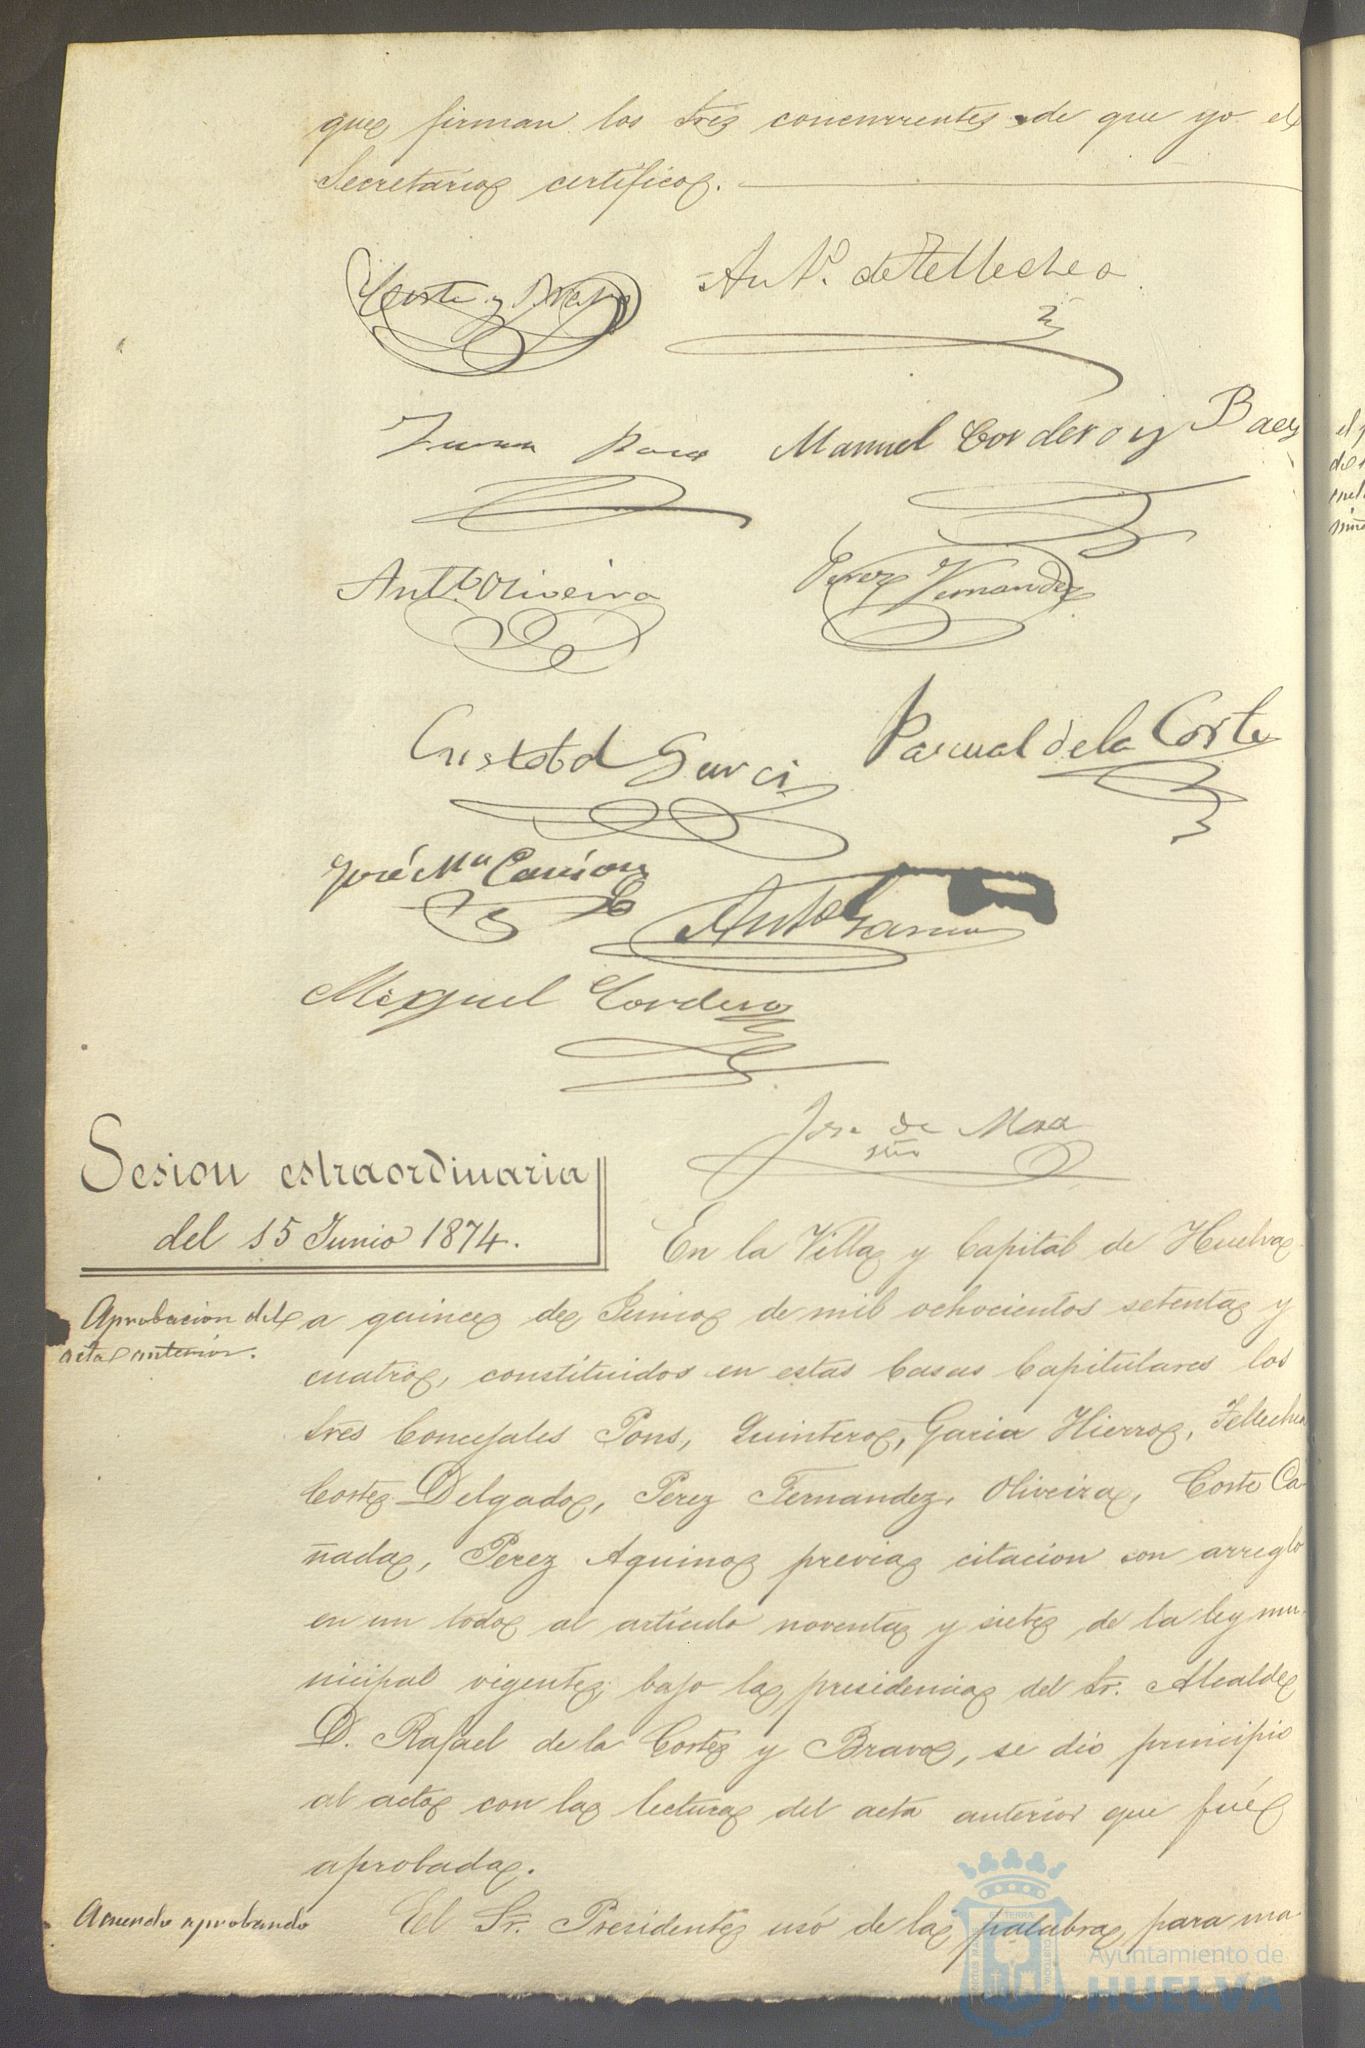 que firman los Sres concurrentes de que yo el
Secretario certifico.
Corte y Bravo
Antº. de Tellechea
Juan Manuel Cordero y Baez
Antº. Oliveira
Perez Fernandez
Cristobal Garcia
Pascual de la Corte
José Mª
Antº Garcia
Miguel Cordero
Jose de Mora
srio
Sesion estraordinaria
del 15 Junio 1874.
En la Villa y Capital de Huelva
Aprobacion del
acta anterior.
a quince de Junio de mil ochocientos setenta y
cuatro, constituidos en estas Casas Capitulares los
Sres Concejales Pons, Quintero, Garcia Hierro, Tellechea
Corte Delgado, Perez Fernandez, Oliveira, Corte Ca-
ñada, Perez Aquino previa citacion con arreglo
en un todo al artículo noventa y siete de la ley mu-
nicipal vigente, bajo la presidencia del Sr. Alcalde
D. Rafael de la Corte y Bravo, se dió principio
al acto con la lectura del acta anterior que fué
aprobada.
Acuerdo aprobando
El Sr. Presidente usó de la palabra para ma-
el
Ayuntamiento de
HUELVA